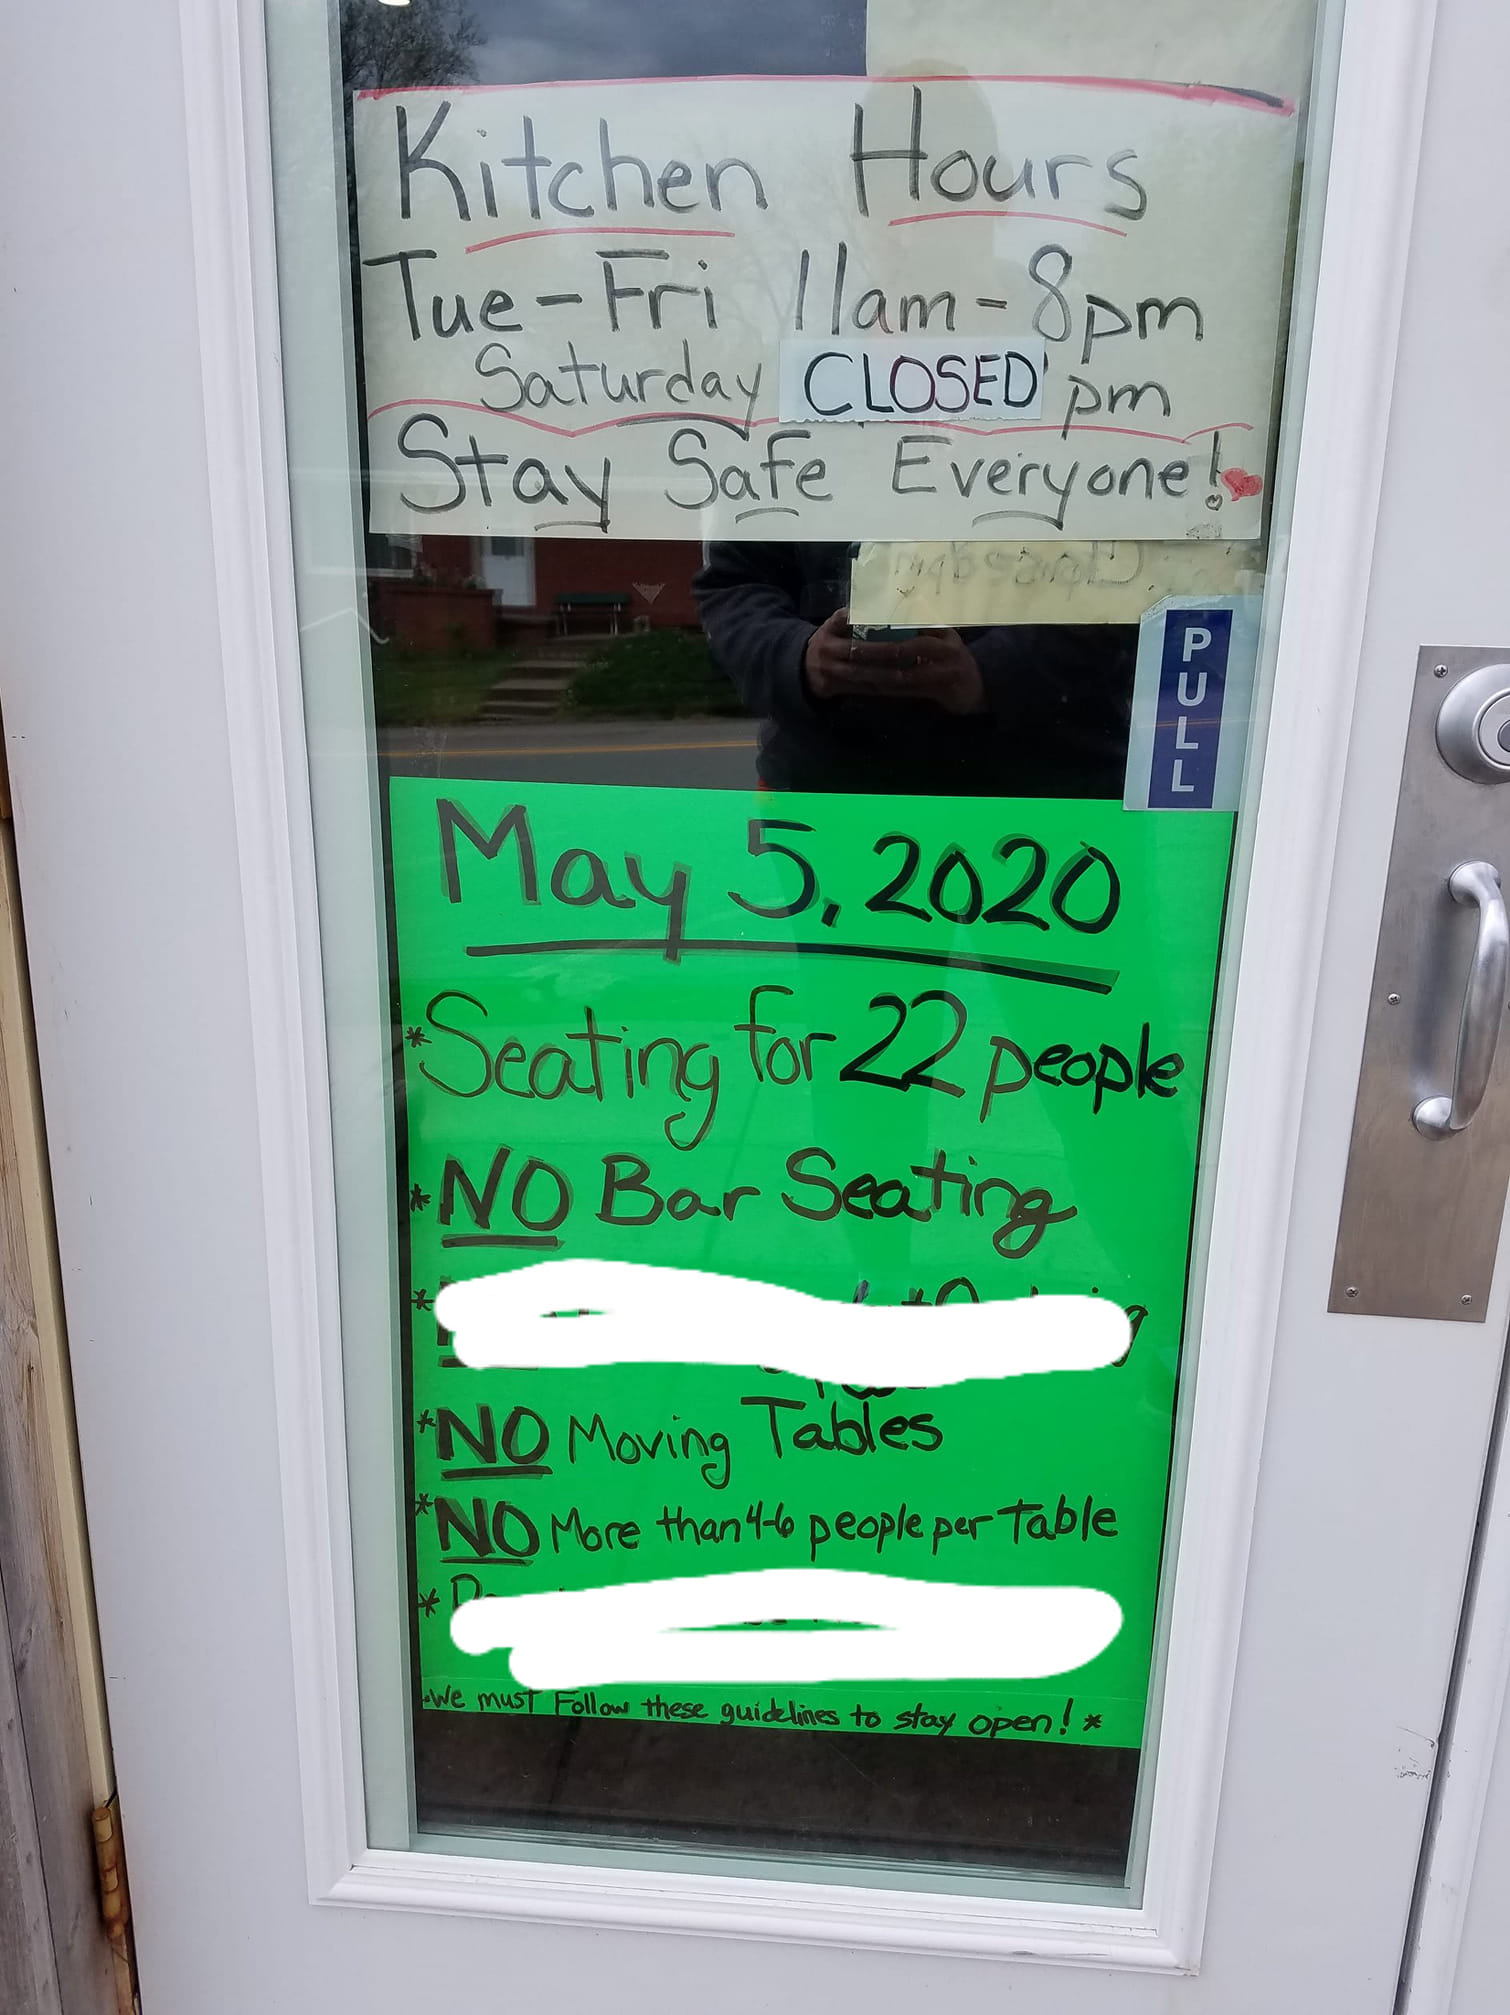 Kitchen Hours
Tue-Fri 11am-8pm
Saturday CLOSED pm
Stay Safe Everyone!
PULL
May 5, 2020
*Seating for 22 people
*NO Bar Seating
*
*NO Moving Tables
*NO More than 4-6 people per Table
*
We must Follow these guidelines to stay open! *